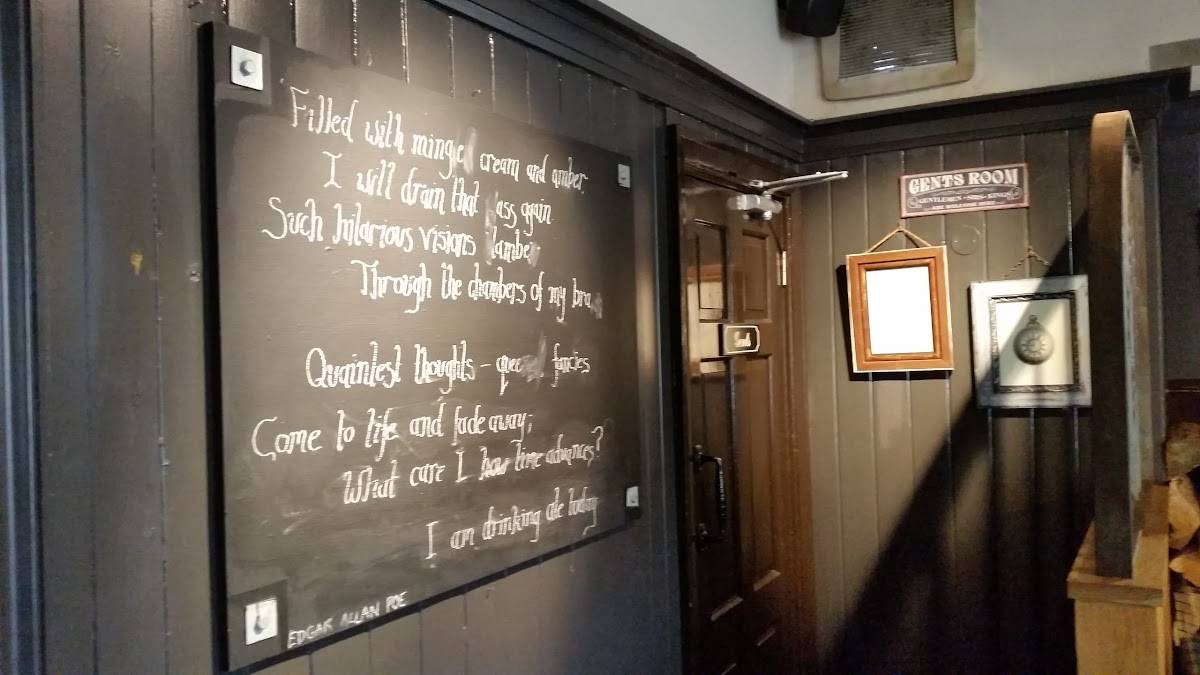 Filled with mingled cream and amber
I will drain that ass again
Such hilarious visions lamber
Through the chambers of my bra
Quaintest thoughts - fancies
Come to life and fade away;
What care I how time advances?
I am drinking ale today
EDGAR ALLAN POE
GENTS ROOM
GENTLEMEN • SIRS • KINGS
ARE WELCOME HERE
Gents